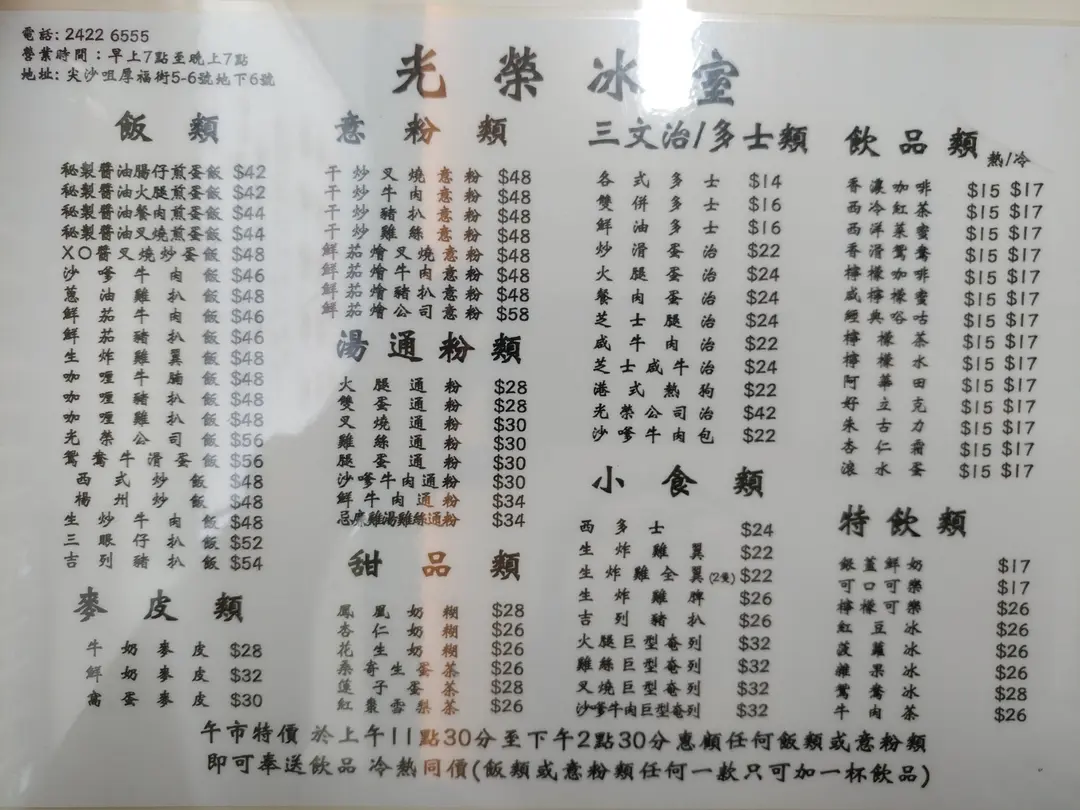 電話: 2422 6555
營業時間：早上7點至晚上7點
地址: 尖沙咀厚福街5-6號地下6號
光榮冰室
飯類
秘製醬油腸仔煎蛋飯 $42
秘製醬油火腿煎蛋飯 $42
秘製醬油餐肉煎蛋飯 $44
秘製醬油叉燒煎蛋飯 $44
XO醬叉燒炒蛋飯 $48
沙嗲牛肉飯 $46
蔥油雞扒飯 $48
鮮茄牛肉飯 $46
鮮茄豬扒飯 $46
生炸雞翼飯 $48
咖喱牛腩飯 $48
咖喱豬扒飯 $48
咖喱雞扒飯 $48
光榮公司飯 $56
鴛鴦牛滑蛋飯 $56
西式炒飯 $48
楊州炒飯 $48
生炒牛肉飯 $48
三眼仔扒飯 $52
吉列豬扒飯 $54
麥皮類
牛奶麥皮 $28
鮮奶麥皮 $32
窩蛋麥皮 $30
意粉類
干炒叉燒意粉 $48
干炒牛肉意粉 $48
干炒豬扒意粉 $48
干炒雞絲意粉 $48
鮮茄燴叉燒意粉 $48
鮮茄燴牛肉意粉 $48
鮮茄燴豬扒意粉 $48
鮮茄燴公司意粉 $58
湯通粉類
火腿通粉 $28
雙蛋通粉 $28
叉燒通粉 $30
雞絲通粉 $30
腿蛋通粉 $30
沙嗲牛肉通粉 $30
鮮牛肉通粉 $34
忌廉雞湯雞絲通粉 $34
甜品類
鳳凰奶糊 $28
杏仁奶糊 $26
花生奶糊 $26
桑寄生蛋茶 $26
蓮子蛋茶 $28
紅棗雪梨茶 $26
三文治/多士類
各式多士 $14
雙併多士 $16
鮮油多士 $16
炒滑蛋治 $22
火腿蛋治 $24
餐肉蛋治 $24
芝士腿治 $24
咸牛肉治 $22
芝士咸牛治 $24
港式熱狗 $22
光榮公司治 $42
沙嗲牛肉包 $22
小食類
西多士 $24
生炸雞翼 $22
生炸雞全翼(2隻) $22
生炸雞髀 $26
吉列豬扒 $26
火腿巨型奄列 $32
雞絲巨型奄列 $32
叉燒巨型奄列 $32
沙嗲牛肉巨型奄列 $32
飲品類 熱/冷
香濃咖啡 $15 $17
西冷紅茶 $15 $17
西洋菜蜜 $15 $17
香滑鴛鴦 $15 $17
檸檬咖啡 $15 $17
咸檸檬蜜 $15 $17
經典唂咕 $15 $17
檸檬茶 $15 $17
檸檬水 $15 $17
阿華田 $15 $17
好立克 $15 $17
朱古力 $15 $17
杏仁霜 $15 $17
滾水蛋 $15 $17
特飲類
銀蓋鮮奶 $17
可口可樂 $17
檸檬可樂 $26
紅豆冰 $26
菠蘿冰 $26
雜果冰 $26
鴛鴦冰 $28
牛肉茶 $26
午市特價 於上午11點30分至下午2點30分惠顧任何飯類或意粉類
即可奉送飲品 冷熱同價(飯類或意粉類任何一款只可加一杯飲品)